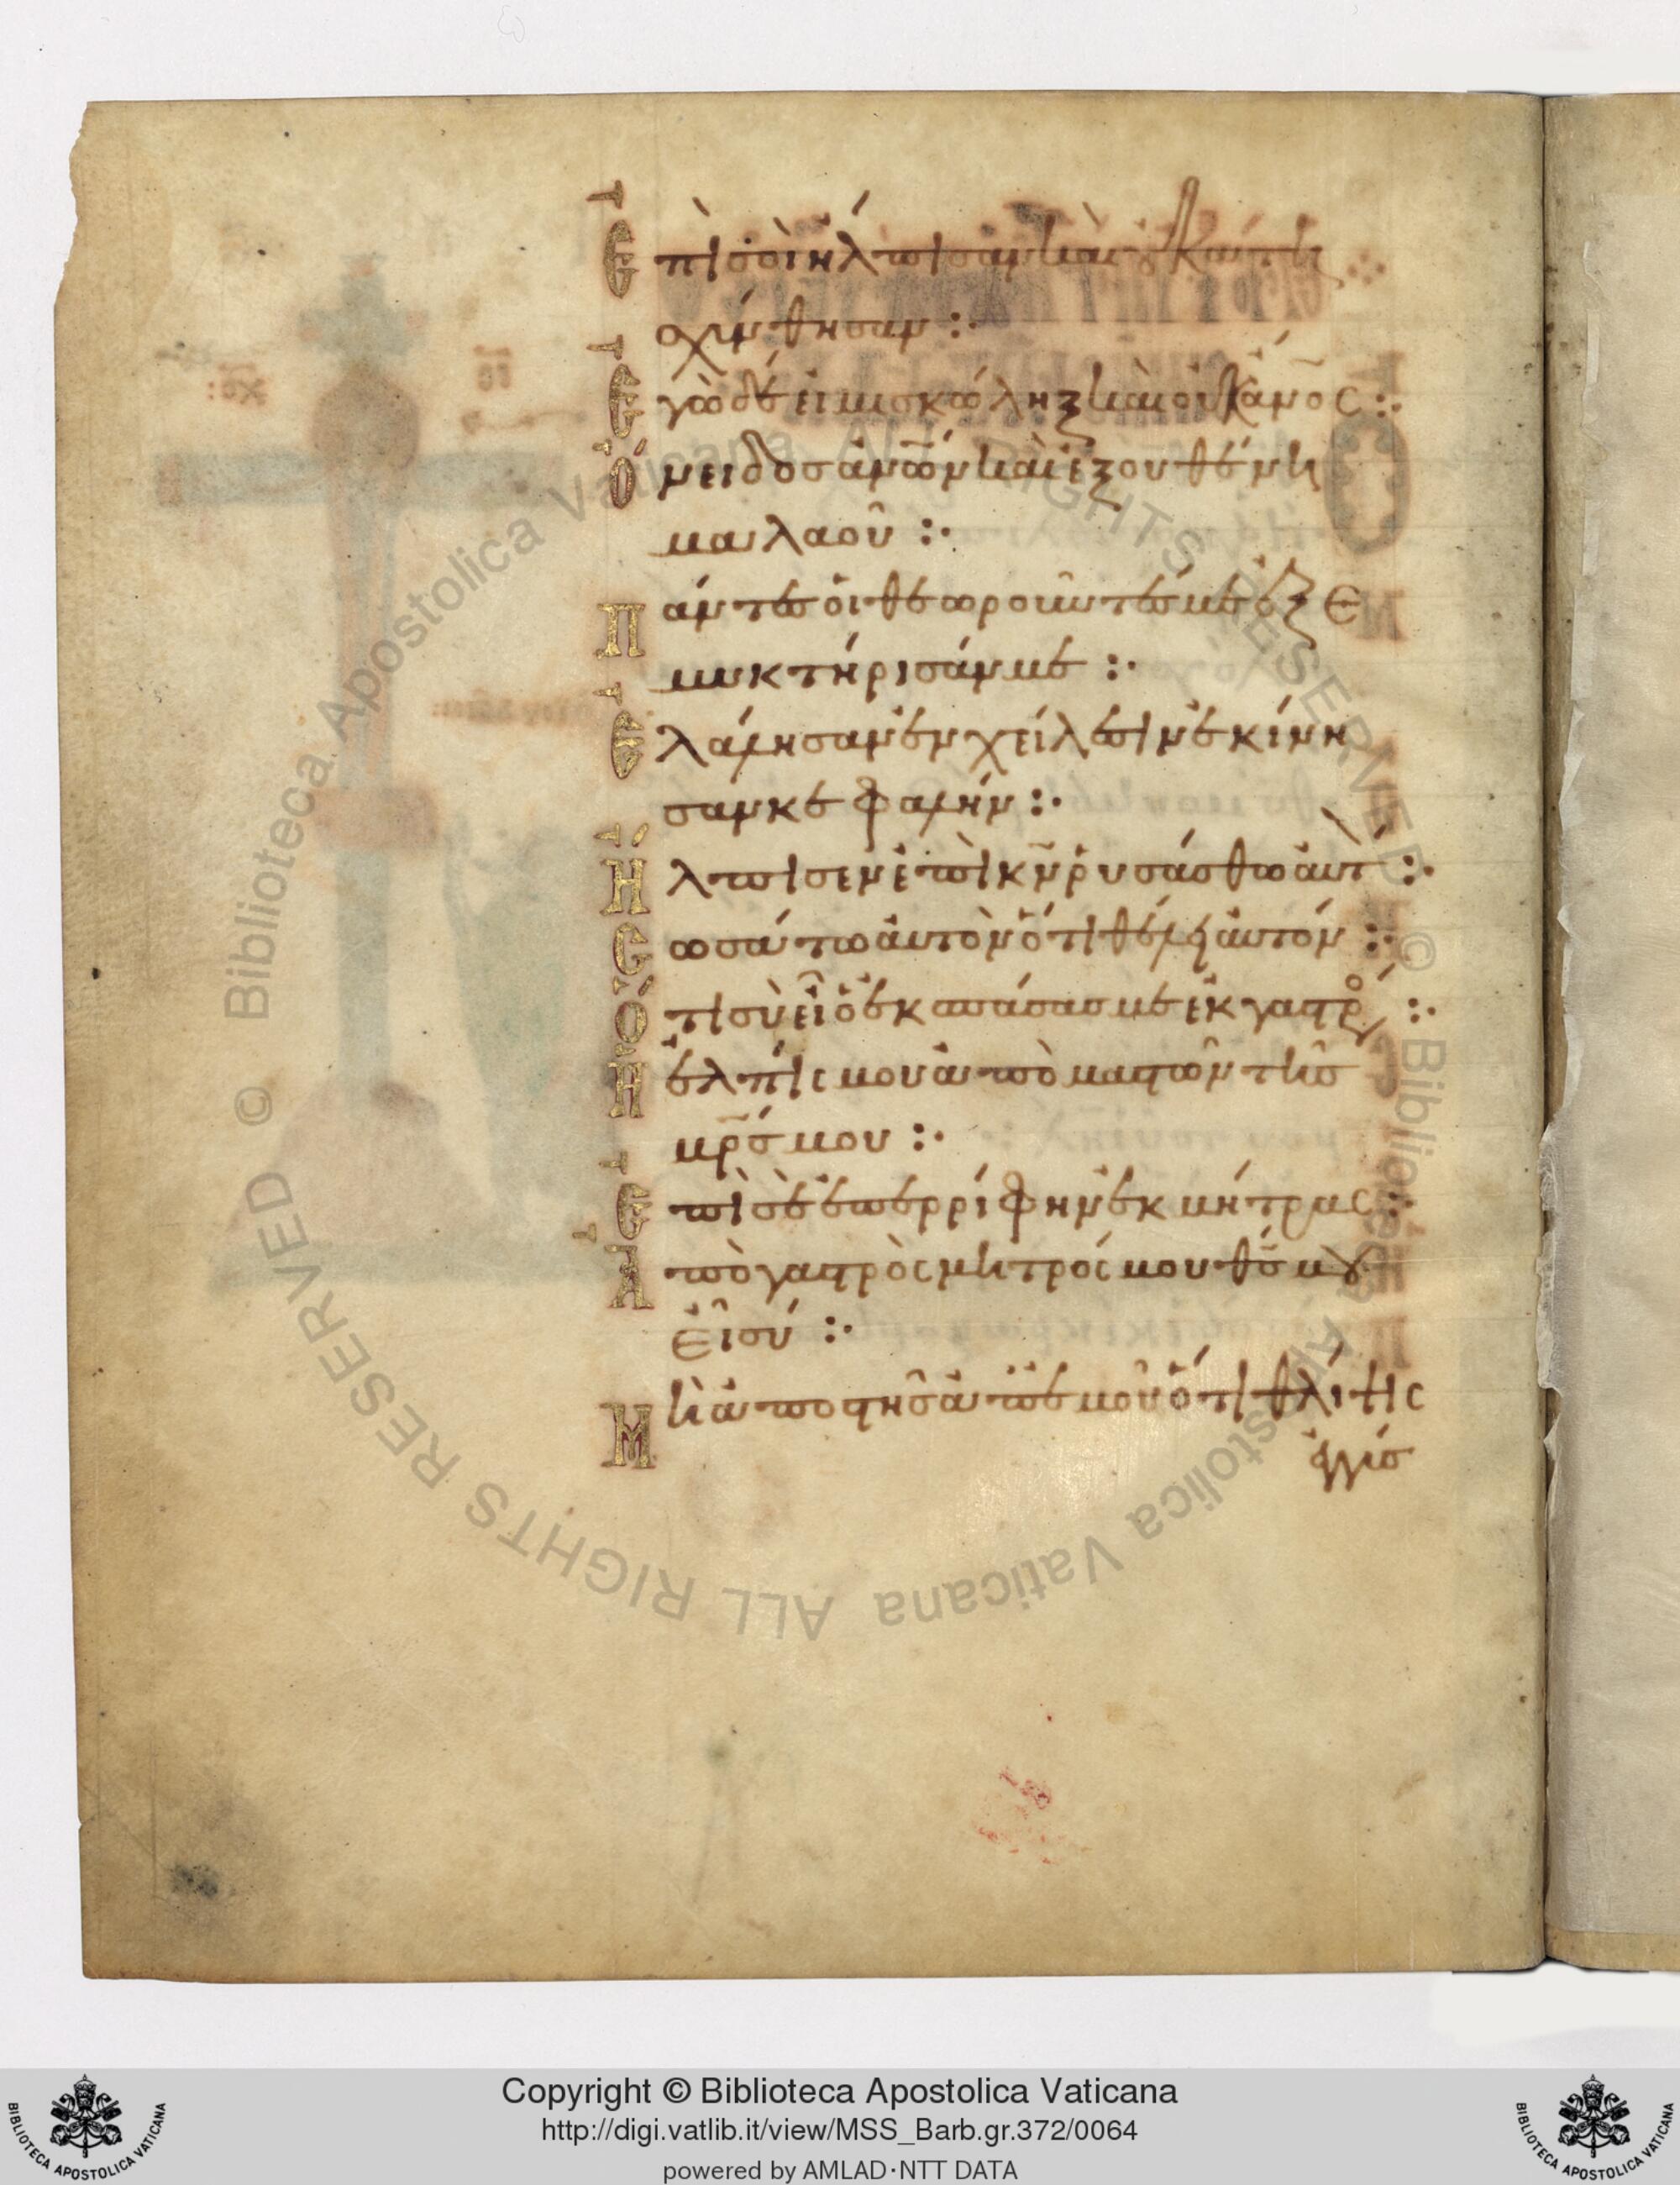 Ἐπὶ σοὶ ἤλπισαν καὶ οὐ κατῃ
σχύνθησαν :·
Ἐγὼ δέ εἰμι σκώληξ καὶ οὐκ ἄνος :·
Ὄνειδος ἀνῶν καὶ ἐξουθένη
μα λαοῦ :·
Πάντες οἱ θεωροῦντές με ἐξε
μυκτήρισάν με :·
Ἐλάλησαν ἐν χείλεσιν ἐκίνη
σαν κεφαλήν :·
Ἤλπισεν ἐπὶ κν ῥυσάσθω αὐτ :·
Σωσάτω αὐτὸν ὅτι θέλει αὐτόν :·
Ὅτι σὺ εἶ ὁ ἐκσπάσας με ἐκ γαστρο :·
Ἡ ἐλπίς μου ἀπὸ μαστῶν τῆς
μρς μου :·
Ἐπὶ σὲ ἐπερρίφην ἐκ μήτρας :·
Ἀπὸ γαστρὸς μητρός μου θς μου
εἶ σύ :·
Μὴ ἀποστῇς ἀπ' ἐμοῦ ὅτι θλίψις
ἐγγύς
Copyright © Biblioteca Apostolica Vaticana
http://digi.vatlib.it/view/MSS_Barb.gr.372/0064
powered by AMLAD·NTT DATA
BIBLIOTECA APOSTOLICA VATICANA
BIBLIOTECA APOSTOLICA VATICANA
© Biblioteca Apostolica Vaticana ALL RIGHTS RESERVED © Biblioteca Apostolica Vaticana ALL RIGHTS RESERVED